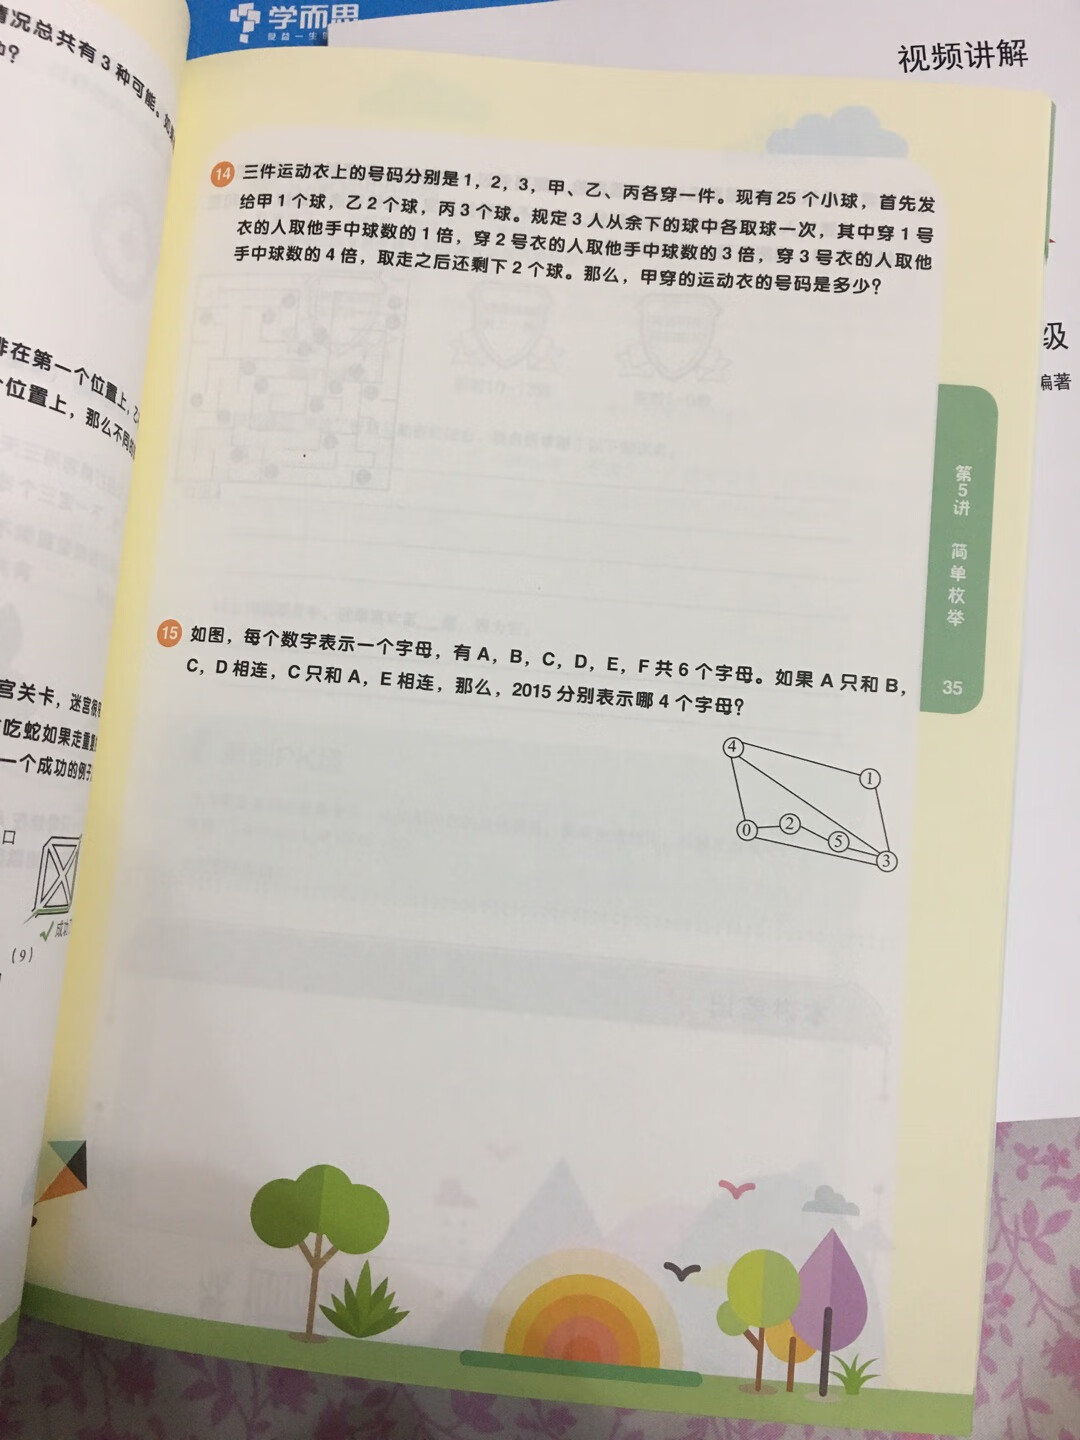 情况总共有3种可能。
学而思
视频讲解
14 三件运动衣上的号码分别是1,2,3,甲、乙、丙各穿一件。现有25个小球,首先发
给甲1个球,乙2个球,丙3个球。规定3人从余下的球中各取球一次,其中穿1号
衣的人取他手中球数的1倍,穿2号衣的人取他手中球数的3倍,穿3号衣的人取他
手中球数的4倍,取走之后还剩下2个球。那么,甲穿的运动衣的号码是多少?
排在第一个位置上,
位置上,那么不同的
级
编著
第5讲 简单枚举
35
15 如图,每个数字表示一个字母,有A,B,C,D,E,F共6个字母。如果A只和B,
C,D相连,C只和A,E相连,那么,2015分别表示哪4个字母?
4
1
0
2
5
3
宫关卡,迷宫很
吃蛇如果走重复
一个成功的例子
口
成功
(9)